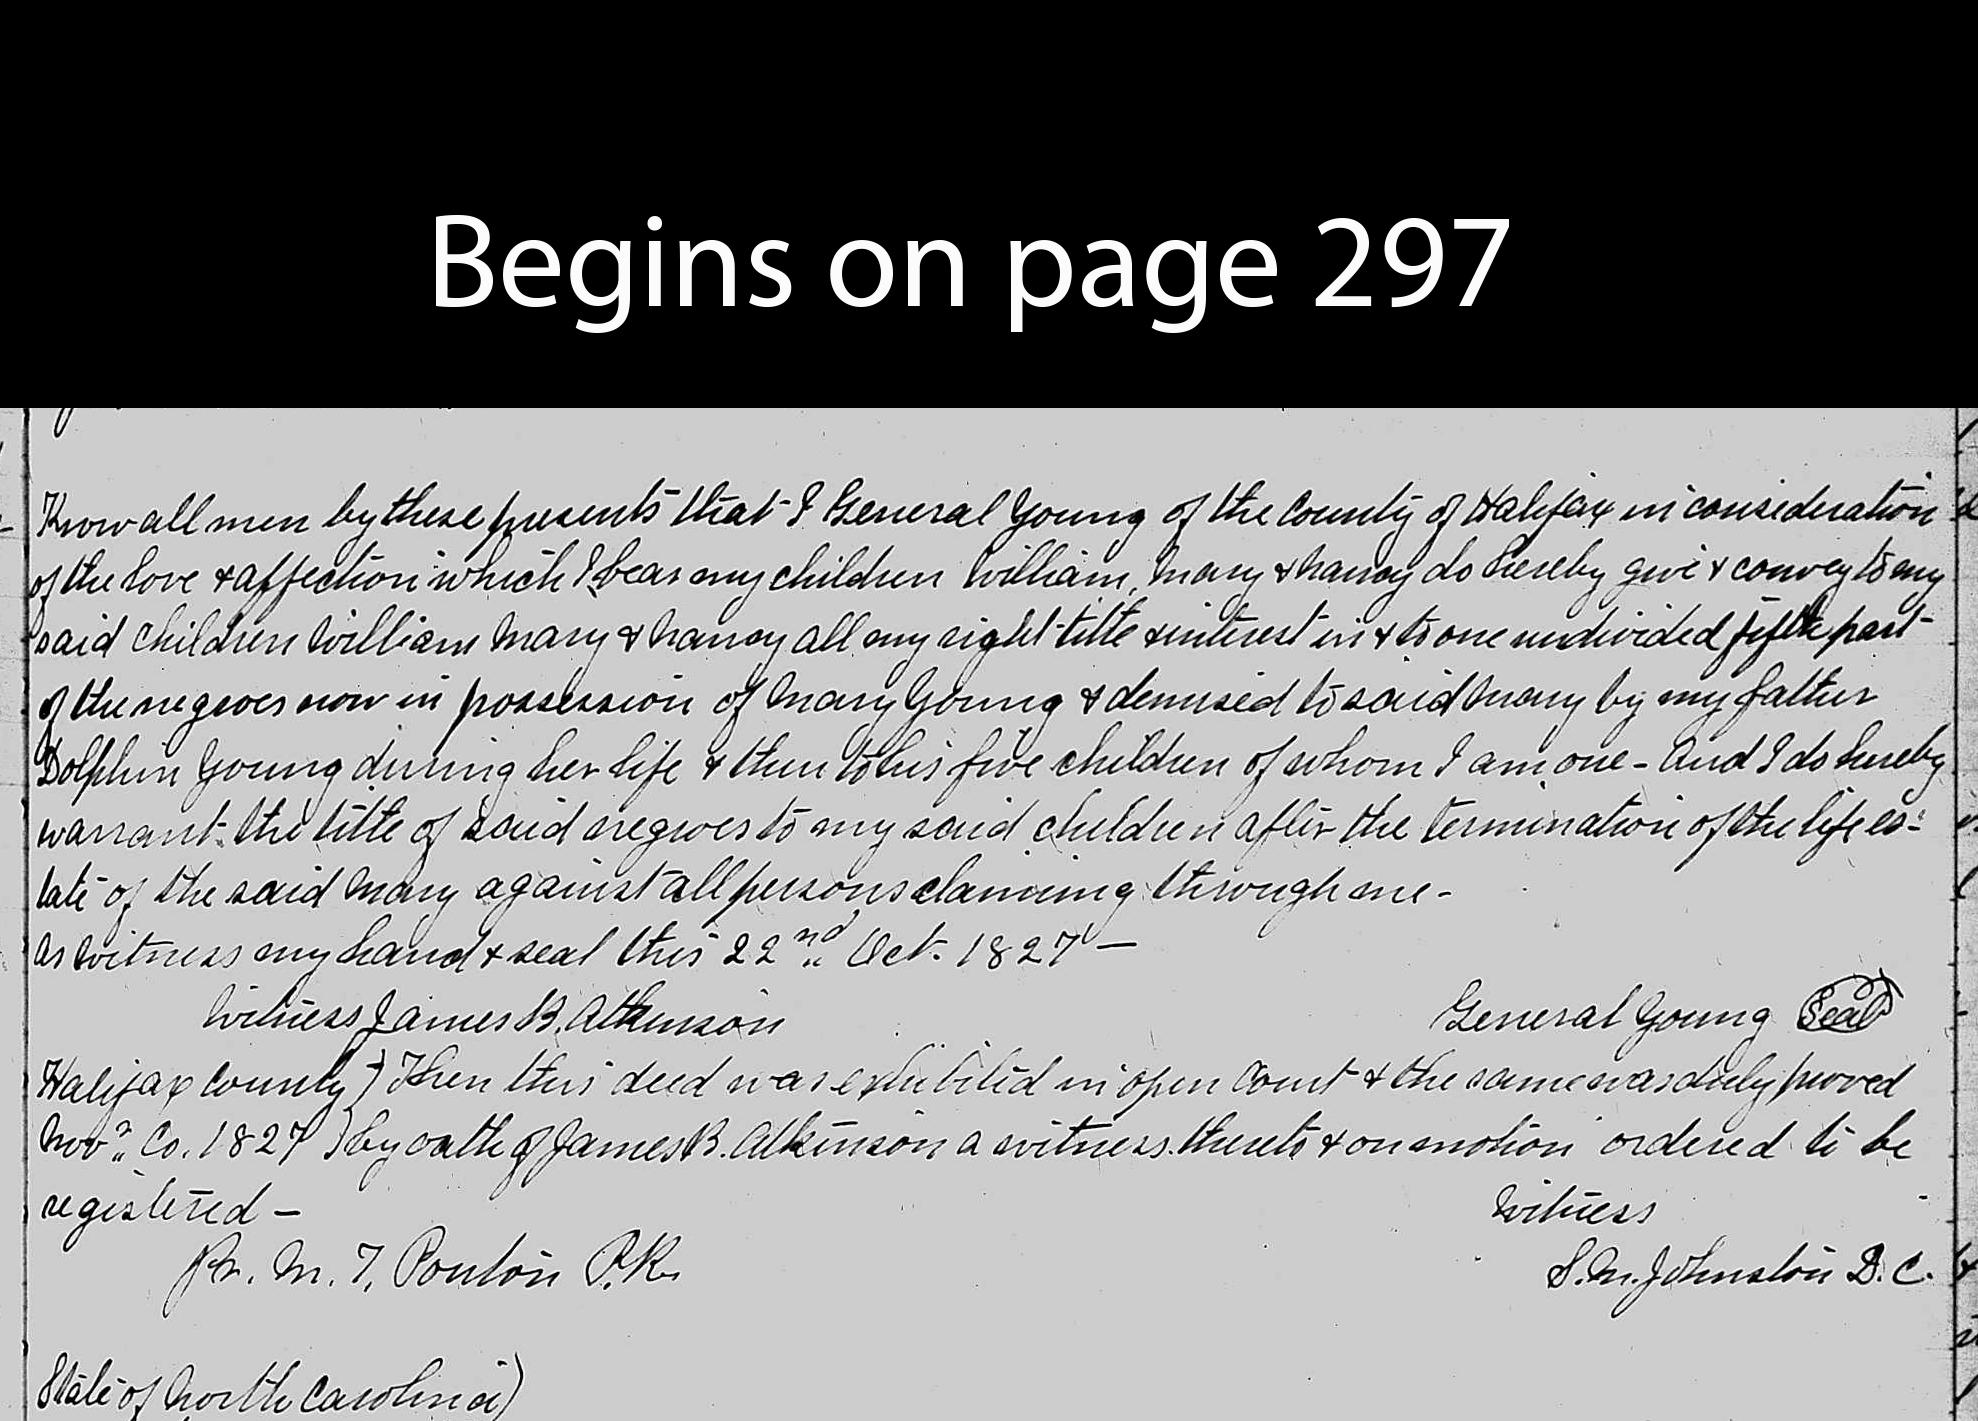 Begins on page 297
Know all men by these presents that I General Young of the County of Halifax in consideration
of the love & affection which I bear my children William, Mary & Nancy do hereby give & convey to my
said children William Mary & Nancy all my right title & interest in & to one undivided fifth part
of the negroes now in possession of Mary Young & demised to said Mary by my father
Dolphin Young during her life & then to his five children of whom I am one - And I do hereby
warrant the title of said negroes to my said children after the termination of the life es-
tate of the said Mary against all persons claiming through me -
As witness my hand & seal this 22nd Oct. 1827 —
Witness James B. Atkinson General Young Seal
Halifax County ) Then this deed was exhibited in open Court & the same was duly proved
Novr. Co. 1827 ) by oath of James B. Atkinson a witness thereto & on motion ordered to be
registered - Witness
Pr. M. T. Ponton P.R. S. M. Johnston D. C.
State of North Carolina )